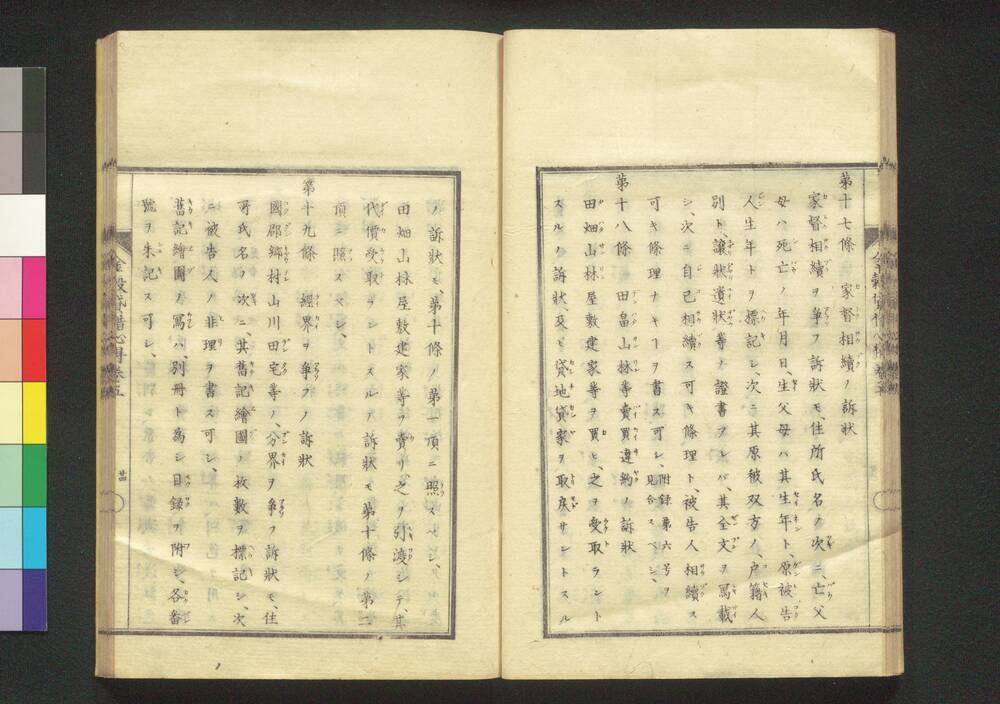 第十七條　家督相續ノ訴狀
家督相續ヲ爭フ訴狀モ、住所氏名ノ次ニ、亡父
母ハ死亡ノ年月日、生父母ハ其生年ト、原被告
人生年トヲ標記シ、次ニ其原被双方ノ、戸籍人
別ト、讓狀遺狀等ノ證書アレバ、其全文ヲ寫載
シ、次ニ自己相續ス可キ條理ト、被告人相續ス
可キ條理ナキヿヲ書ス可シ、附錄第六号ヲ見合スベシ、
第十八條　田畠山林等賣買違約ノ訴狀
田畑山林屋敷建家等ヲ買ヒ、之ヲ受取ラントスルノ訴狀、及ビ貸地貸家ヲ取戻サントスル
ノ訴狀モ、第十條ノ第一項ニ照スベシ、
田畑山林屋敷建家等ヲ賣リ、之ヲ引渡シテ、其
代價受取ラントスルノ訴狀モ第十條ノ第二
項ニ照スベシ、
第十九條　經界ヲ爭フノ訴狀
國郡鄉村山川田宅等ノ、分界ヲ爭フ訴狀モ、住
所氏名ノ次ニ、其舊記繪圖ノ枚數ヲ標記シ、次
ニ被告人ノ非理ヲ書ス可シ、
舊記繪圖ノ寫ハ、別冊ト爲シ目錄ヲ附シ、各番
號ヲ朱記ス可シ、
金穀貸借心得卷五
廿四